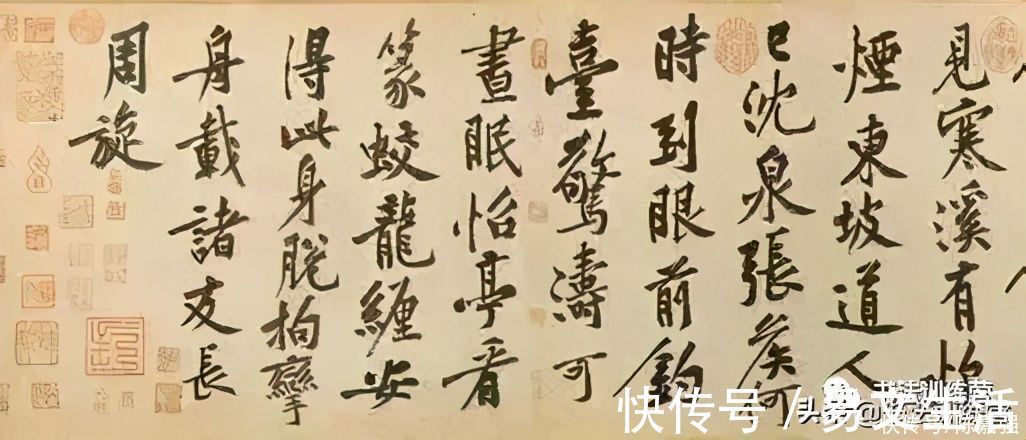 見寒溪有炊
煙東坡道人
已沈泉張侯何
時到眼前釣
臺驚濤可
晝眠怡亭看
篆蛟龍纏安
得此身脫拘攣
舟載諸友長
周旋
书法训练营
快传号 /